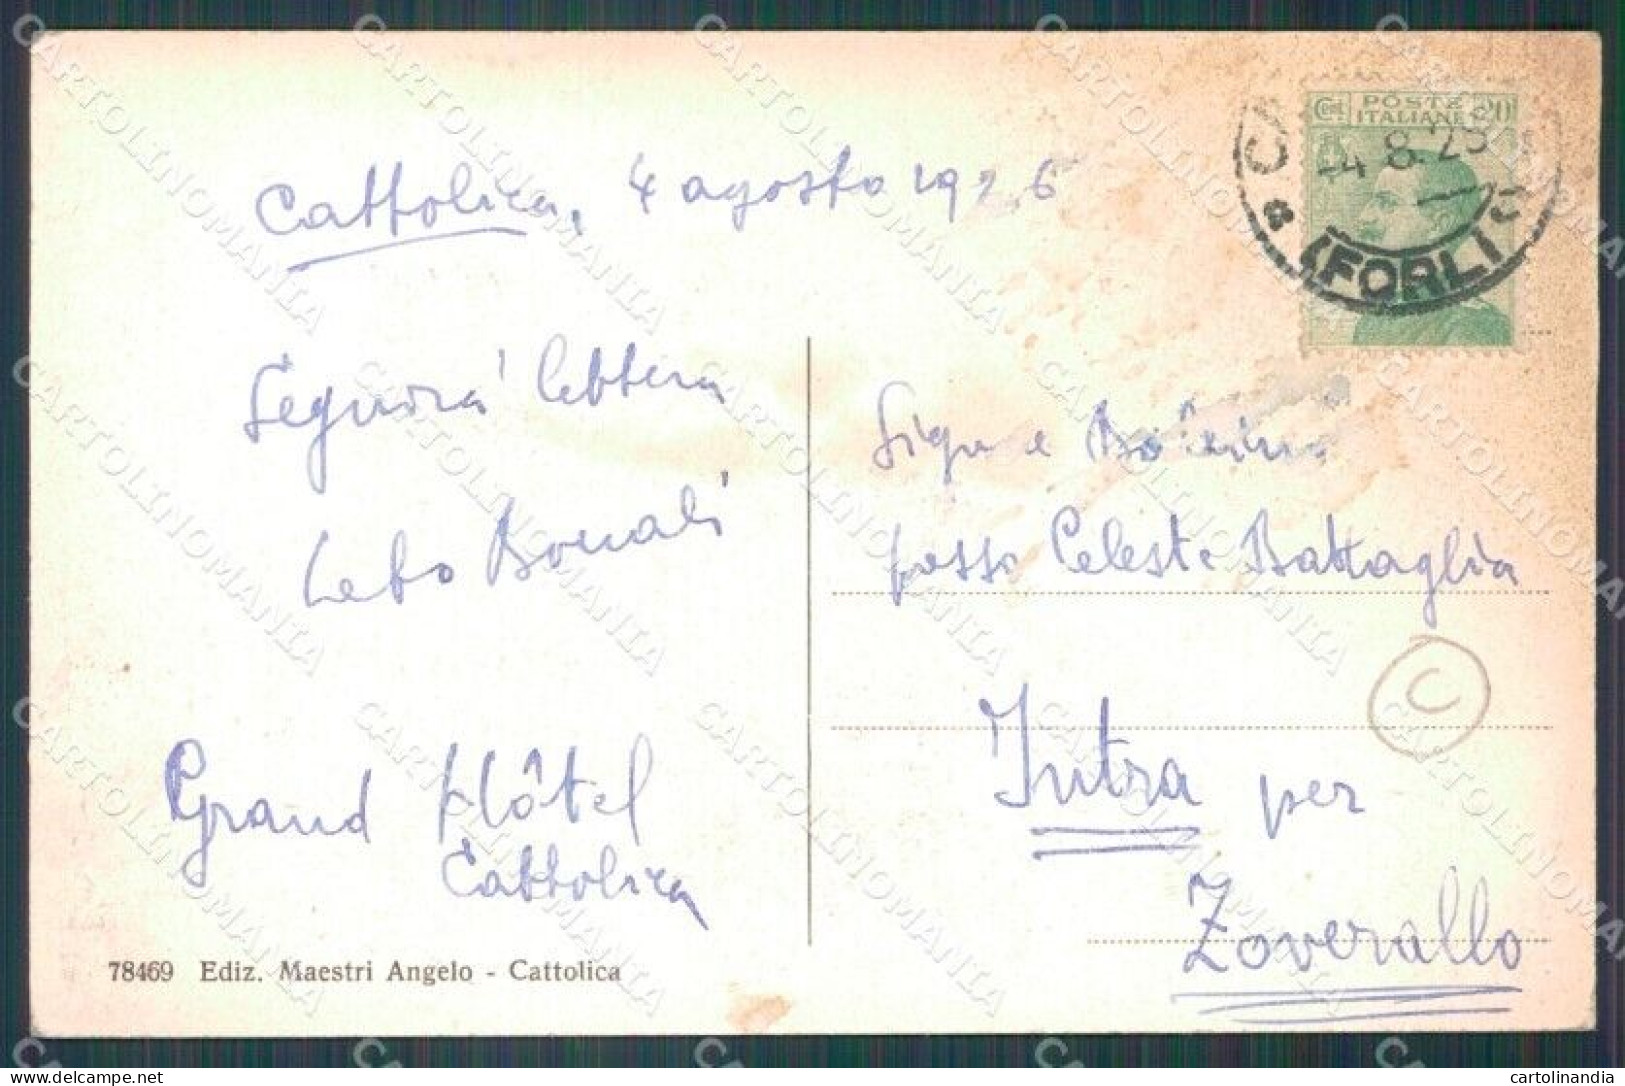 Cattolica, 4 agosto 1926
Seguirà lettera
Bonali
Grand Hôtel
Cattolica
78469 Ediz. Maestri Angelo - Cattolica
Cent. POSTE 20
ITALIANE
-4.8.25
(FORLI)
presso Celeste Battaglia
C
Intra per
Zoverallo
CARTOLINOMANIA
cartolinandia
www.delcampe.net